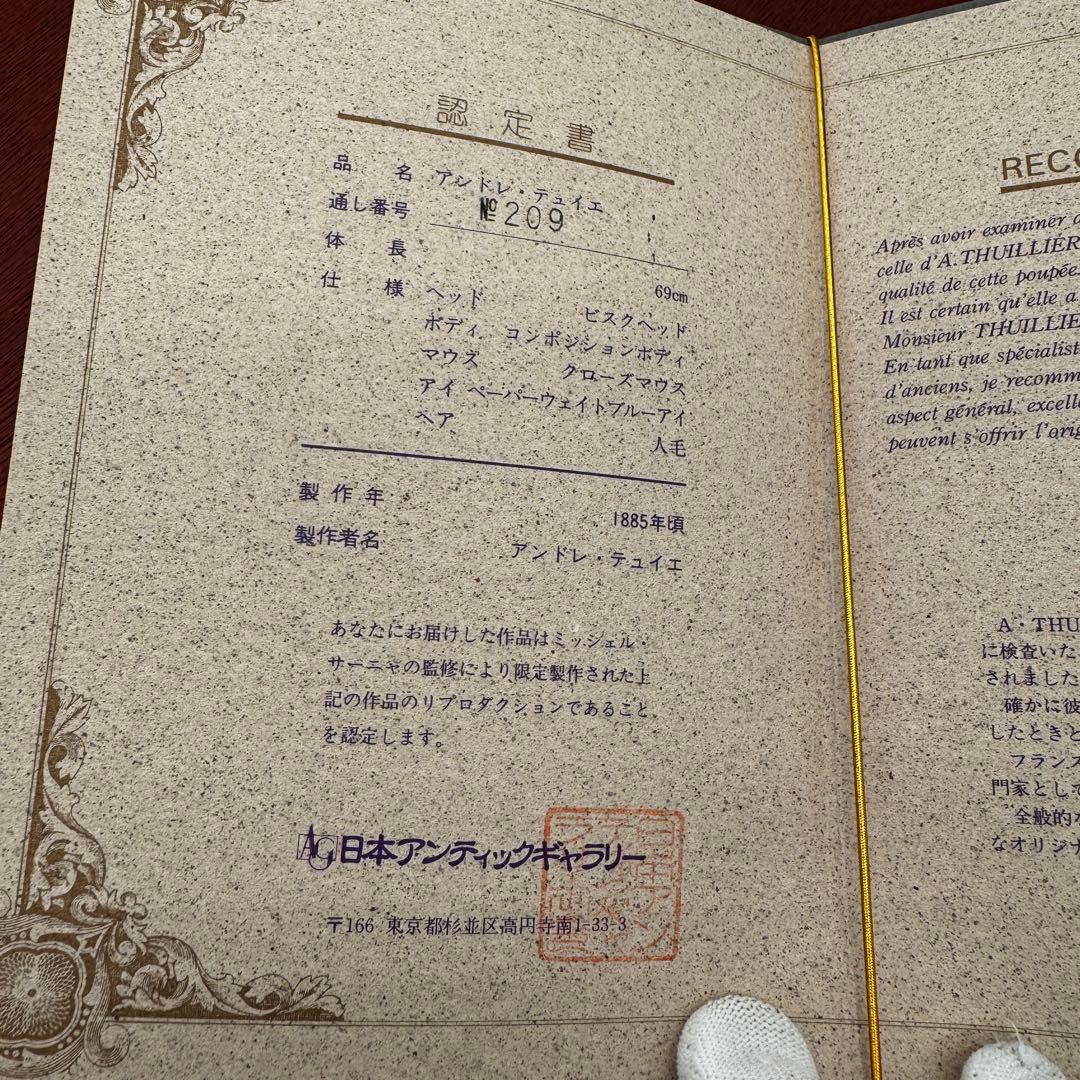 認定書
品名 アンドレ・テュイエ
通し番号 № 209
体長 69cm
仕様 ヘッド ビスクヘッド
ボディ コンポジションボディ
マウス クローズマウス
アイ ペーパーウェイトブルーアイ
ヘア 人毛
製作年 1885年頃
製作者名 アンドレ・テュイエ
あなたにお届けした作品はミッシェル・
サーニャの監修により限定製作された上
記の作品のリプロダクションであること
を認定します。
AG 日本アンティックギャラリー
〒166 東京都杉並区高円寺南1-33-3
RECO
Après avoir examiner a
celle d'A.THUILLIER
qualité de cette poupée.
Il est certain qu'elle a
Monsieur THUILLIE
En tant que spécialist
d'anciens, je recomm
aspect général, excelle
peuvent s'offrir l'orig
A・THU
に検査いた
されました
確かに彼
したときと
フランス
門家として
全般的な
なオリジナ